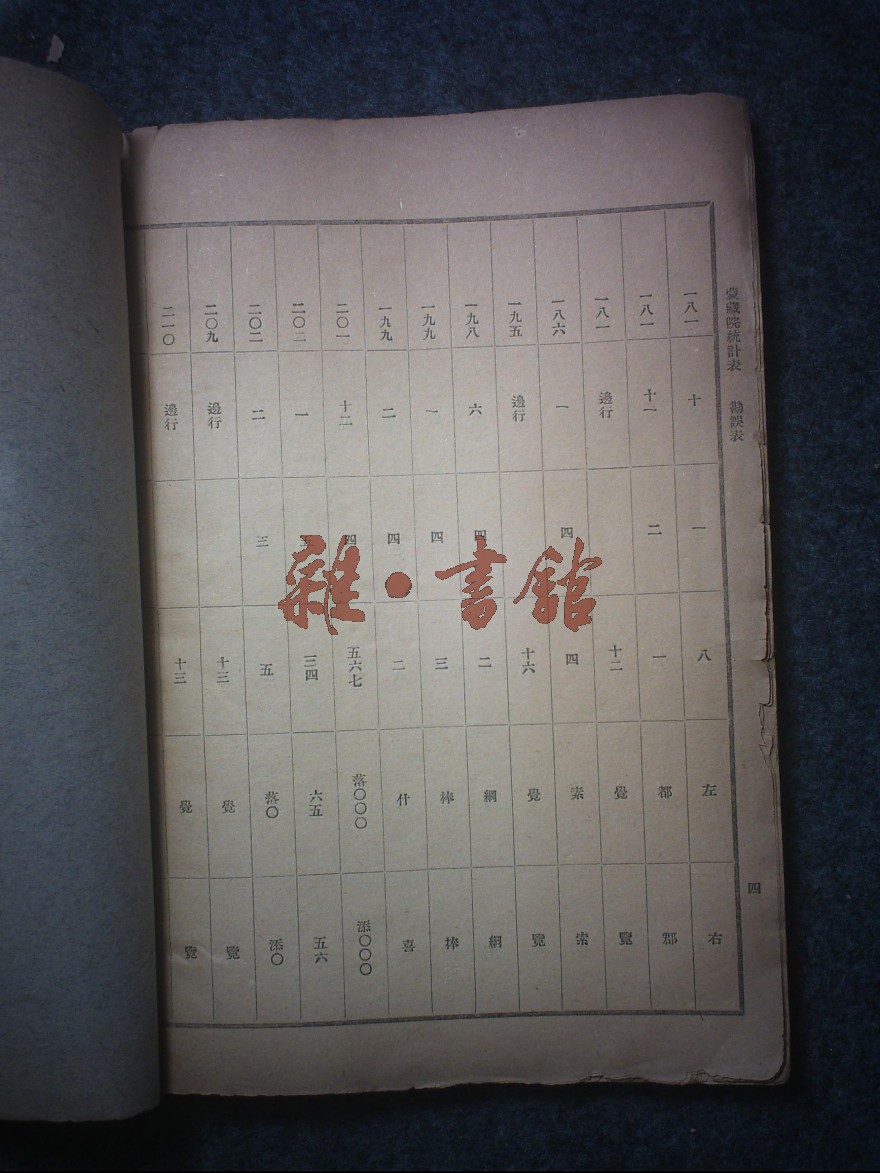 蒙藏院統計表 勘誤表 四
一八一 十 一 八 左 右
一八一 十一 二 一 都
一八一 邊行 十二 覺 覽
一八六 一 四 四 素 索
一九五 邊行 十六 覺 覽
一九八 六 四 二
一九九 一 四 三
一九九 二 四 二 什 喜
二〇一 十二 四 五六七 落〇〇〇 添〇〇〇
二〇二 一 三四 六五 五六
二〇二 二 三 五 落〇 添〇
二〇九 邊行 十三 覺 覽
二一〇 邊行 十三 覺 覽
雜·書館